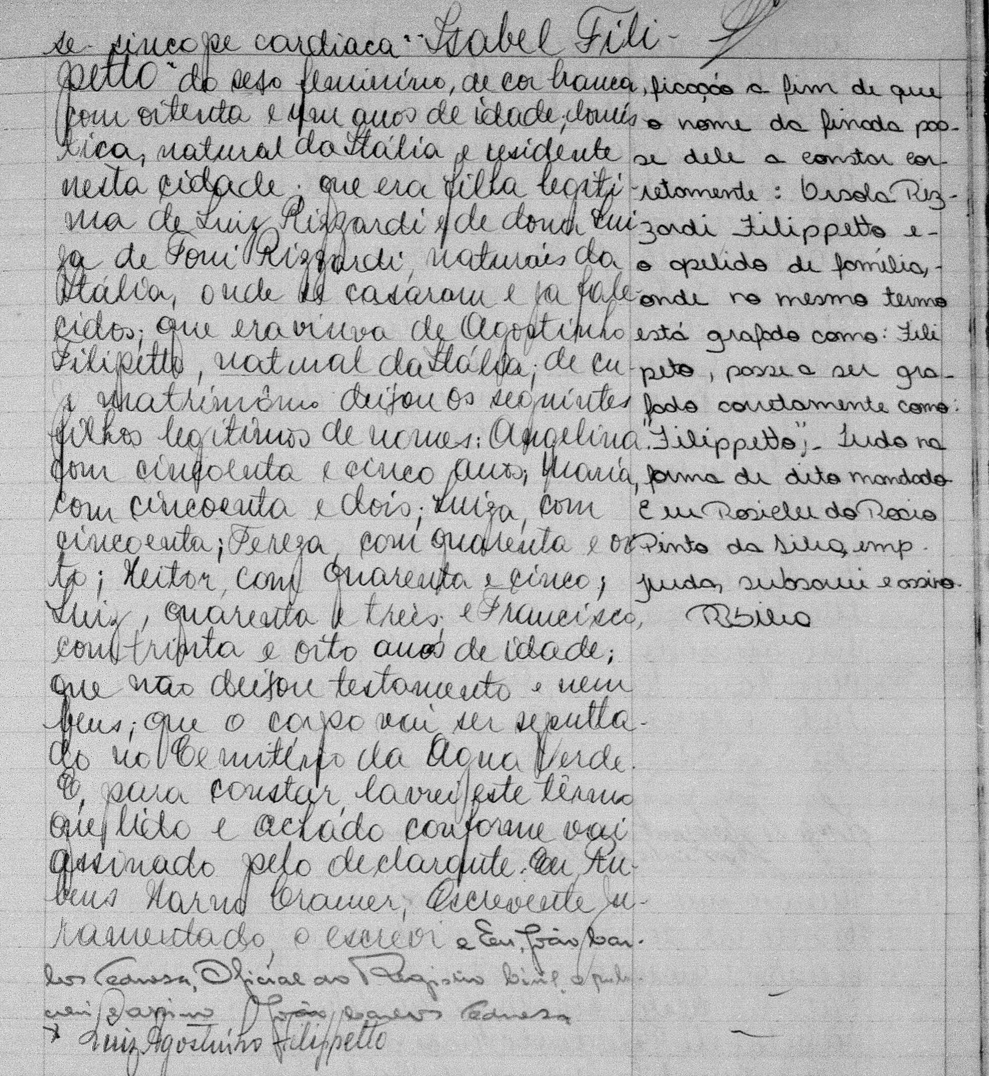 se síncope cardiaca "Isabel Fili-
petto" do sexo feminino, de cor branca,
com oitenta e um anos de idade, domés
tica, natural da Itália e residente
nesta cidade; que era filha legiti-
ma de Luiz Rizzardi e de dona Lui
za de Toni Rizzardi, naturais da
Itália, onde se casaram e já fale-
cidos; que era viuva de Agostinho
Filipetto, natural da Itália; de cu-
jo matrimônio deixou os seguintes
filhos legítimos de nomes: Angelina
com cincoenta e cinco anos; Maria,
com cincoenta e dois; Luiza, com
cincoenta; Tereza, com quarenta e oi
to; Heitor, com quarenta e cinco;
Luiz, quarenta e treis e Francisco,
com trinta e oito anos de idade;
que não deixou testamento e nem
bens; que o corpo vai ser sepulta-
do no Cemitério da Agua Verde
E, para constar, lavrei este têrmo
que lido e achado conforme vai
assinado pelo declarante. Eu Ru-
bens Cramer, Escrevente Ju-
ramentado, o escrevi e Eu, João Car-
los Oficial do Registro Civil, o
e assino João Carlos
Luiz Agostinho Filippetto
ficação a fim de que
o nome da finada pas-
se dele a constar cor-
retamente: Ursola Riz-
zardi Filippetto e-
o apelido de família,-
onde no mesmo termo
está grafado como: Fili
peto, passe a ser gra-
fado corretamente como:
"Filippetto";- Tudo na
forma de dito mandado
Eu Rosielu do Rocio
Pinto da Silva, emp.
juda, subscrevi e assino.
RPSilva